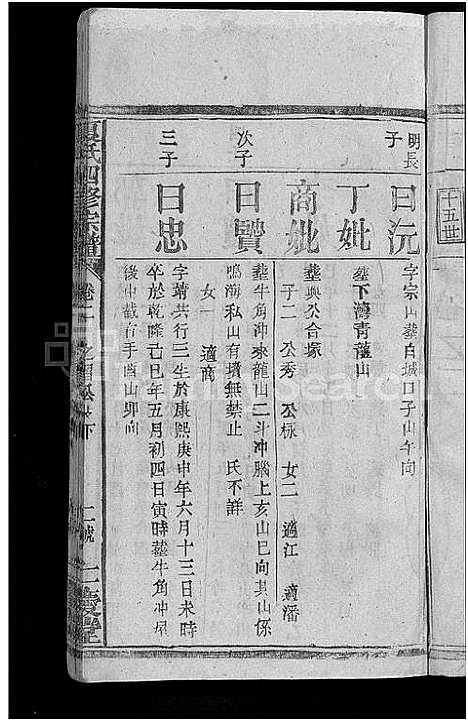 十五世
明長子
曰沅
字宗山葬白城口子山午向
丁妣
葬下灣青龍山
商妣
葬與公合塚
子二 公秀 公椂 女二 適江 適潘
次子
曰贒
葬牛角冲來龍山二斗冲腦上亥山巳向其山係
鳴海私山有墳無禁止 氏不詳
女一 適商
三子
曰忠
字靖共行三生於康熙庚申年六月十三日未時
卒於乾隆己巳年五月初四日寅時葬牛角冲屋
後中截右手酉山卯向
夏氏四修宗譜 卷二 下
二號 仁慶堂